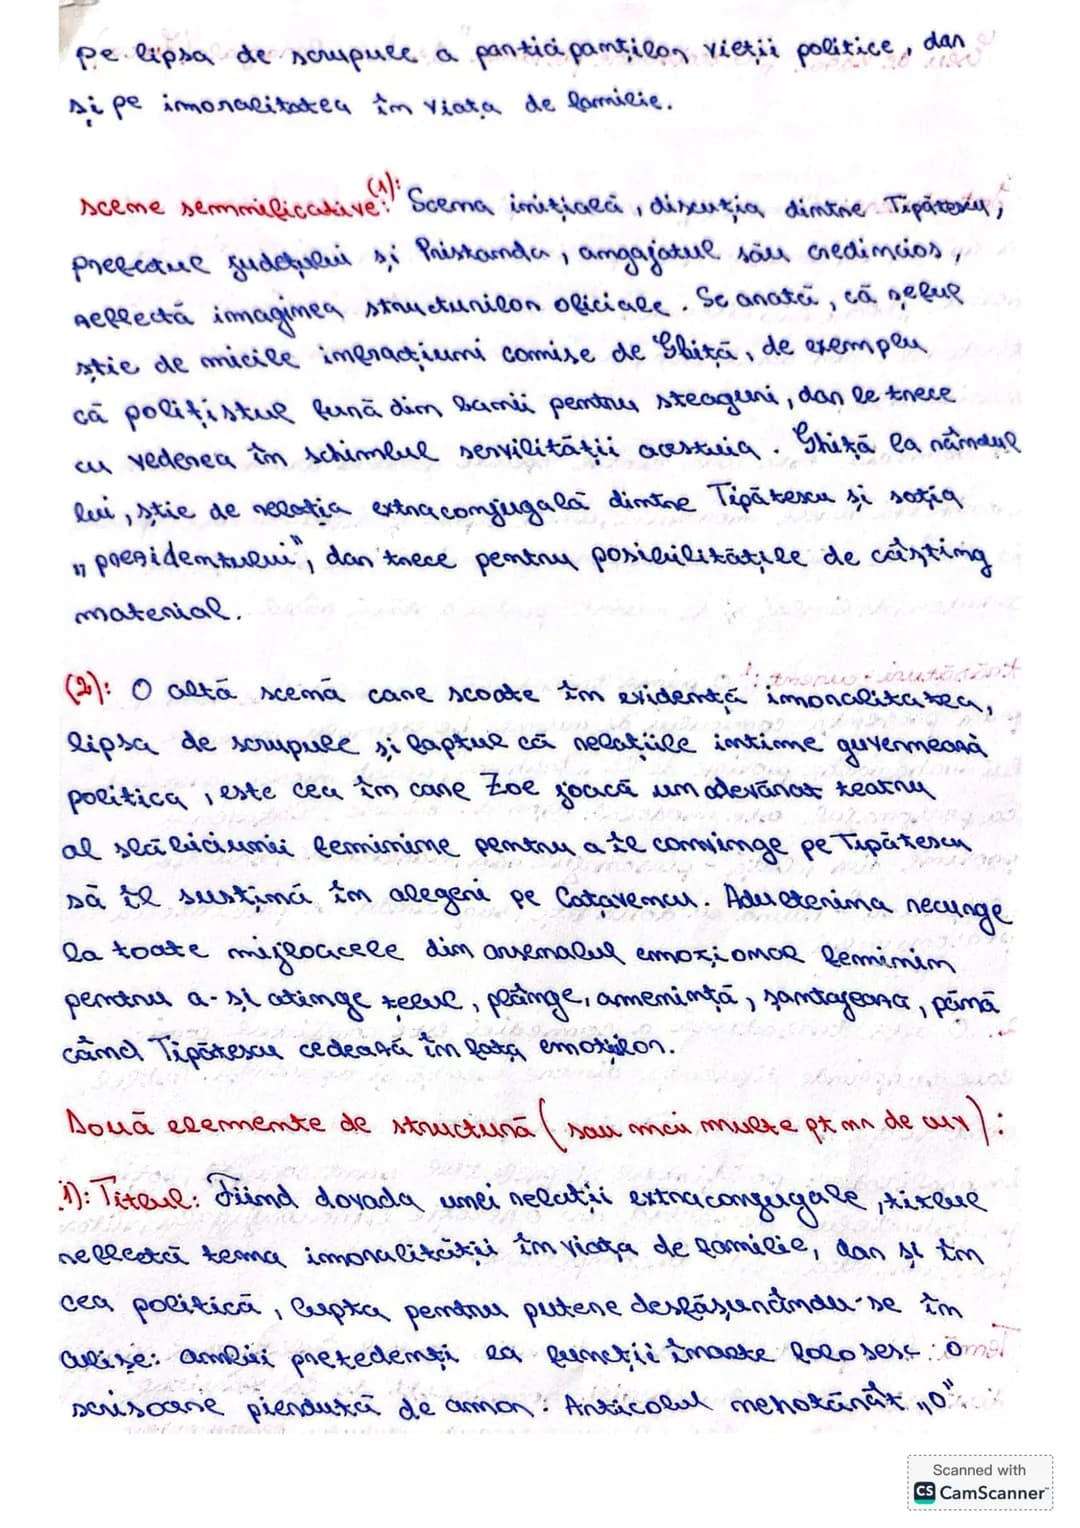 pe lipsa de scrupule a participanților vieții politice, dar
și pe imoralitatea în viața de familie.
scene semnificative: (1): Scena inițială, discuția dintre Tipătescu,
prefectul județului și Pristanda, angajatul său credincios,
reflectă imaginea structurilor oficiale. Se arată, că șeful
știe de micile infracțiuni comise de Ghiță, de exemplu
că polițistul fură din banii pentru steaguri, dar le trece
cu vederea în schimbul servilității acestuia. Ghiță la rândul
lui, știe de relația extraconjugală dintre Tipătescu și soția
„prezidentului", dar trece pentru posibilitățile de câșting
material.
(2): O altă scenă care scoate în evidență imoralitatea,
lipsa de scrupule și faptul că relațiile intime guvernează
politica, este cea în care Zoe joacă un adevărat teatru
al slăbiciunii feminine pentru a îl convinge pe Tipătescu
să îl susțină în alegeri pe Cațavencu. Adulterina recurge
la toate mijloacele din arsenalul emoționar feminin
pentru a-și atinge țelul, plânge, amenință, șantajează, până
când Tipătescu cedează în fața emoțiilor.
Două elemente de structură (sau mai multe pt nr de cuv):
1): Titlul: Fiind dovada unei relații extraconjugale, titlul
reflectă tema imoralității în viața de familie, dar și în
cea politică, lupta pentru putere desfășurându-se în
culise: ambii pretedenți la funcții înarte folosesc o
scrisoare pierdută de amor. Articolul nehotărât „O"
Scanned with
CS CamScanner